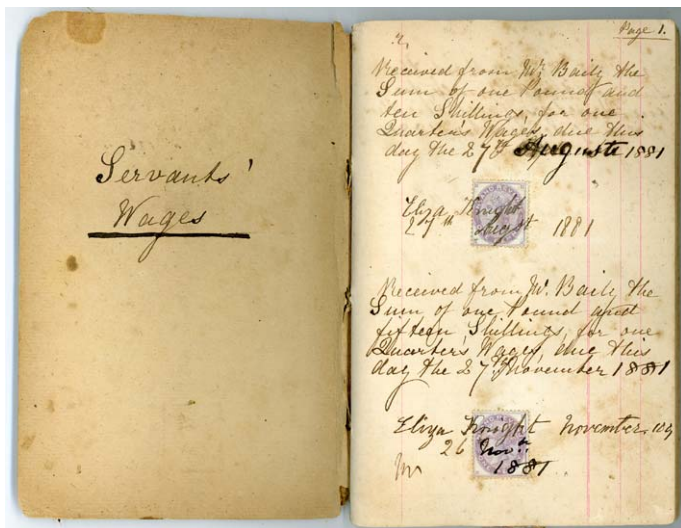 Servants'
Wages
Page 1.
Received from Mr. Baily the
Sum of one Pound and
ten Shillings, for one
Quarter's Wages, due this
day the 27th August 1881
Eliza Knight
27th August 1881
Received from Mr. Baily the
Sum of one Pound and
fifteen Shillings, for one
Quarter's Wages, due this
day the 27th November 1881
Eliza Knight November
26 Novr.
1881.